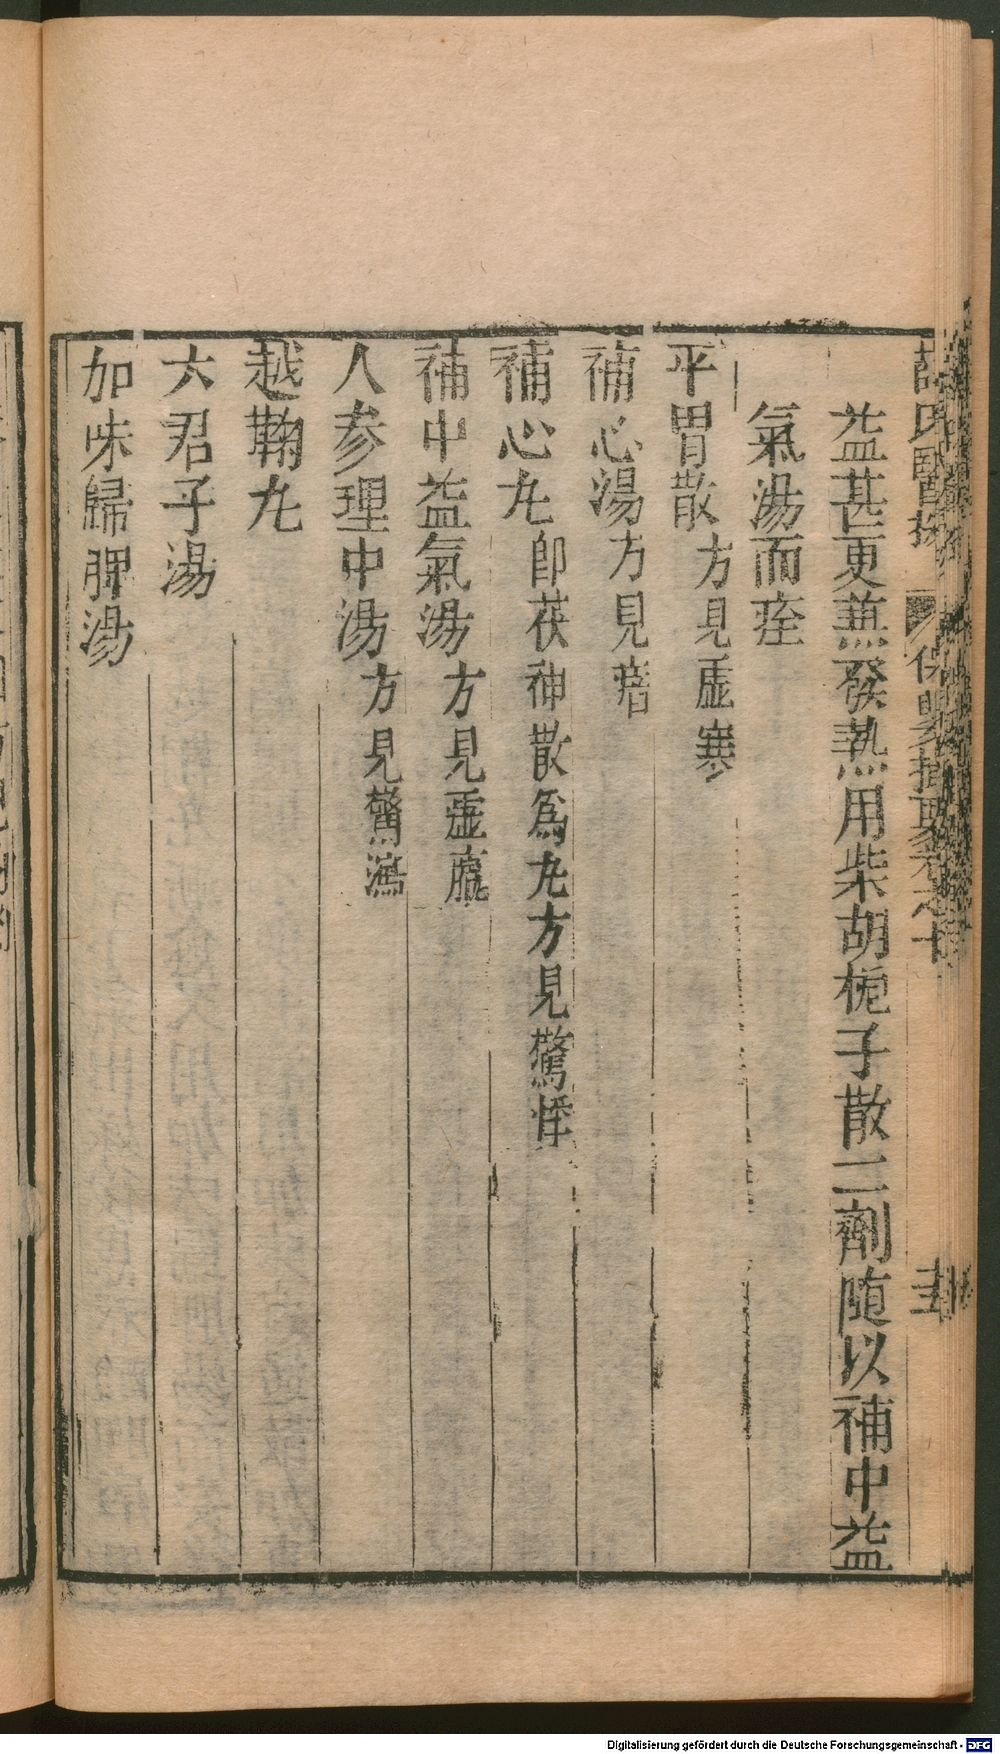 益甚更蒸發熱用柴胡梔子散二劑随以補中益
氣湯而痊
平胃散方見虛寒
補心湯方見瘖
補心丸即茯神散為丸方見驚悸
補中益氣湯方見虛羸
人參理中湯方見驚瀉
越鞠丸
六君子湯
加味歸脾湯
Digitalisierung gefördert durch die Deutsche Forschungsgemeinschaft - DFG